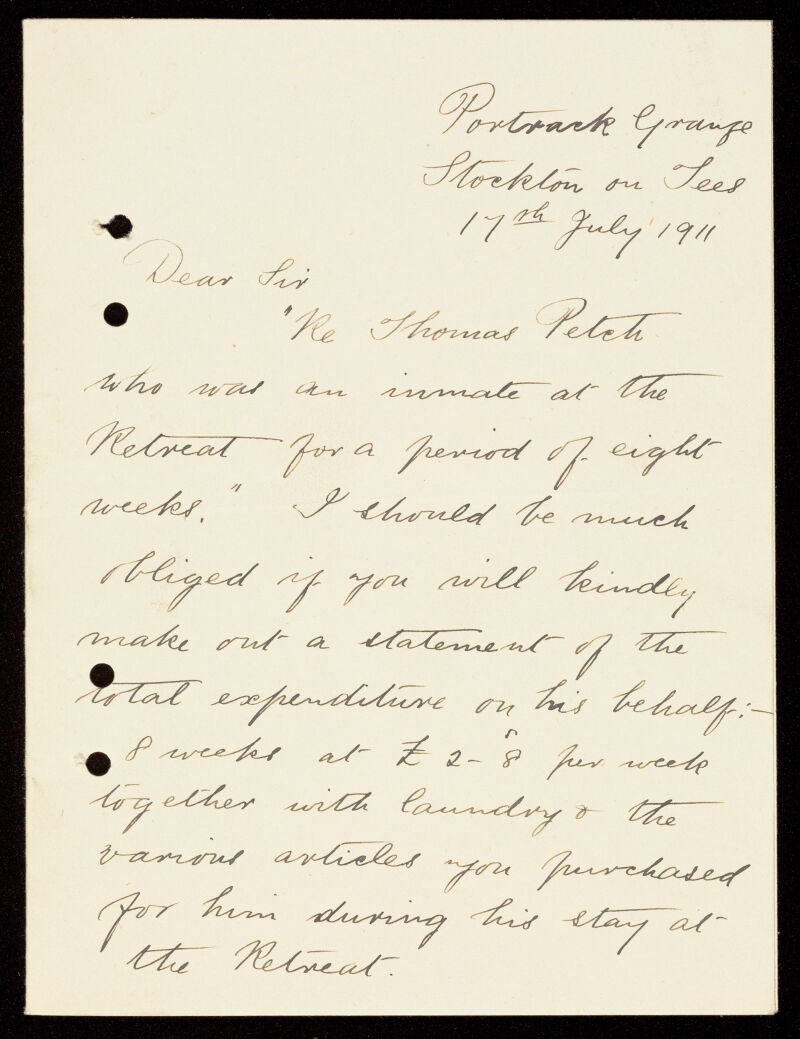 Portrack Grange
Stockton on Tees
17th July 1911
Dear Sir
"Re Thomas Petch
who was an inmate at the
Retreat for a period of eight
weeks." I should be much
obliged if you will kindly
make out a statement of the
total expenditure on his behalf:-
8 weeks at £2-8s per week
together with laundry & the
various articles you purchased
for him during his stay at
the Retreat.